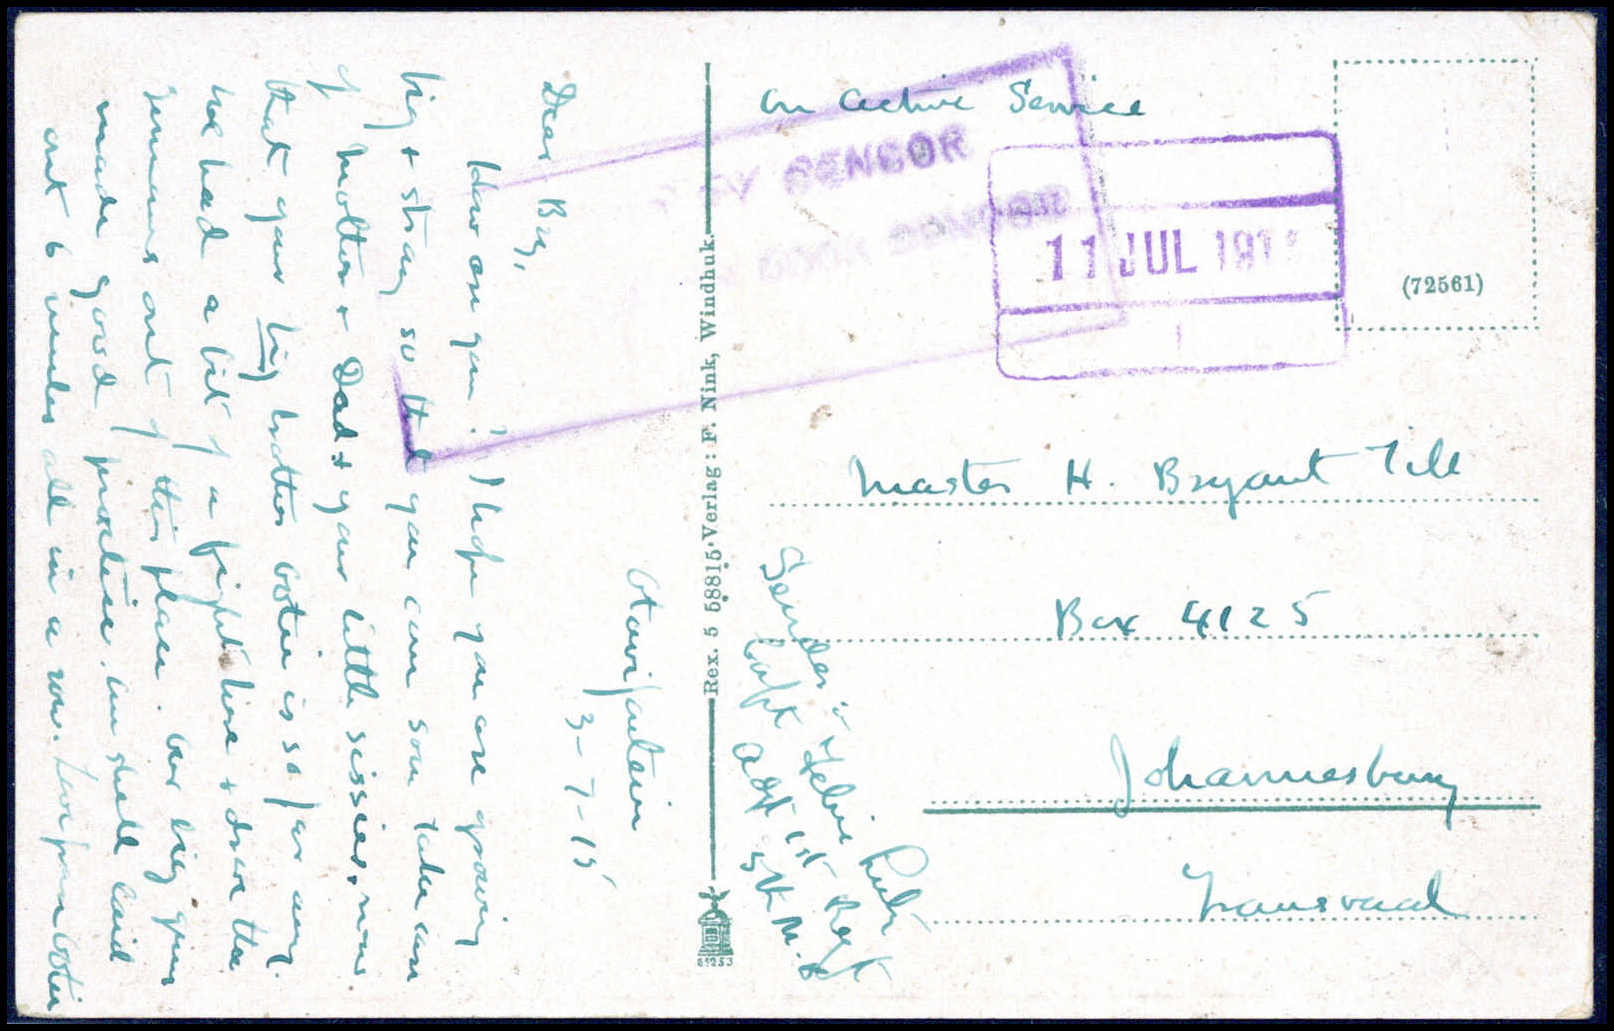 On Active Service
BY CENSOR
CENSOR
11 JUL 191
(72561)
Master H. Bryant Till
Box 4125
Johannesburg
Transvaal
Sender
Capt Adjt 1st Regt
5th M.
Rex. 5 58815·Verlag: F. Nink, Windhuk.
Otavifontein
3-7-15
Dear By,
How are you? I hope you are growing
big & strong so that you can soon take care
of Mother & Dad & your little sissies, now
that your big brother is so far away.
We had a bit of a fight here & drove the
Germans out of this place. Our big guns
made good practice. One shell laid
out 6 mules all in a row. Love from